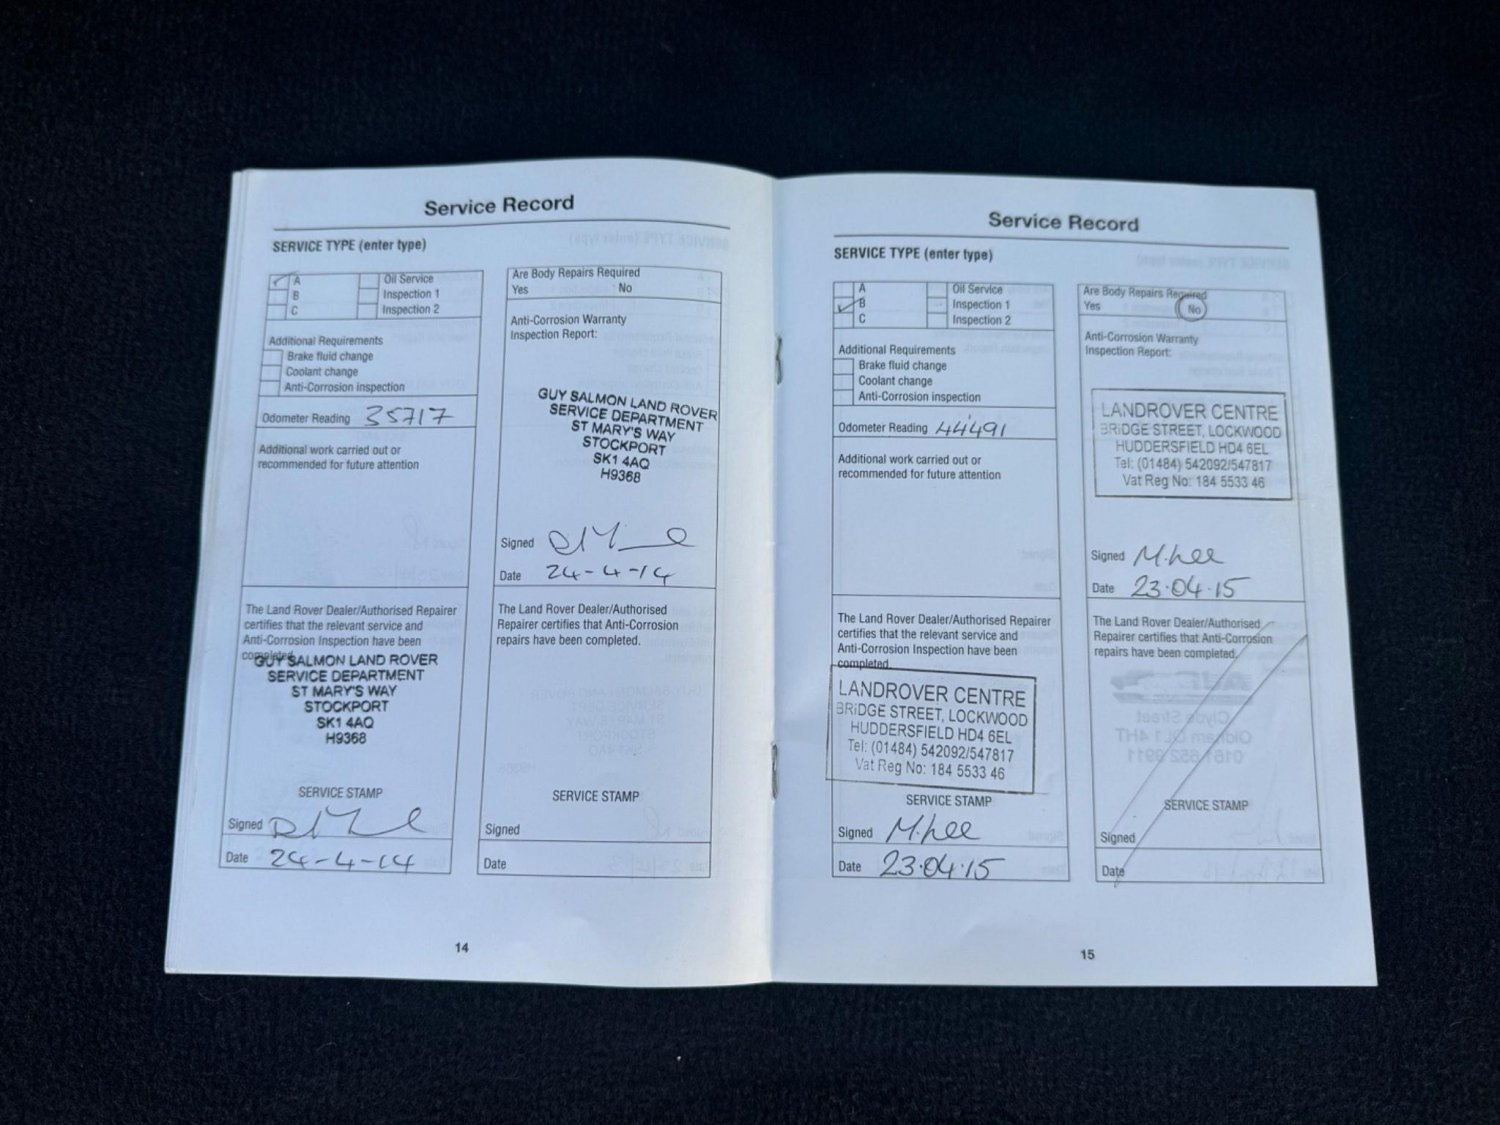 Service Record
SERVICE TYPE (enter type)
A
B
C
Oil Service
Inspection 1
Inspection 2
Additional Requirements
Brake fluid change
Coolant change
Anti-Corrosion inspection
Odometer Reading 35717
Additional work carried out or
recommended for future attention
The Land Rover Dealer/Authorised Repairer
certifies that the relevant service and
Anti-Corrosion Inspection have been
completed.
GUY SALMON LAND ROVER
SERVICE DEPARTMENT
ST MARY'S WAY
STOCKPORT
SK1 4AQ
H9368
SERVICE STAMP
Signed
Date 24-4-14
Are Body Repairs Required
Yes No
Anti-Corrosion Warranty
Inspection Report:
GUY SALMON LAND ROVER
SERVICE DEPARTMENT
ST MARY'S WAY
STOCKPORT
SK1 4AQ
H9368
Signed
Date 24-4-14
The Land Rover Dealer/Authorised
Repairer certifies that Anti-Corrosion
repairs have been completed.
SERVICE STAMP
Signed
Date
14
Service Record
SERVICE TYPE (enter type)
A
B
C
Oil Service
Inspection 1
Inspection 2
Additional Requirements
Brake fluid change
Coolant change
Anti-Corrosion inspection
Odometer Reading 44491
Additional work carried out or
recommended for future attention
The Land Rover Dealer/Authorised Repairer
certifies that the relevant service and
Anti-Corrosion Inspection have been
completed
LANDROVER CENTRE
BRIDGE STREET, LOCKWOOD
HUDDERSFIELD HD4 6EL
Tel: (01484) 542092/547817
Vat Reg No: 184 5533 46
SERVICE STAMP
Signed M.Lee
Date 23.04.15
Are Body Repairs Required
Yes No
Anti-Corrosion Warranty
Inspection Report:
LANDROVER CENTRE
BRIDGE STREET, LOCKWOOD
HUDDERSFIELD HD4 6EL
Tel: (01484) 542092/547817
Vat Reg No: 184 5533 46
Signed M.Lee
Date 23.04.15
The Land Rover Dealer/Authorised
Repairer certifies that Anti-Corrosion
repairs have been completed.
SERVICE STAMP
Signed
Date
15